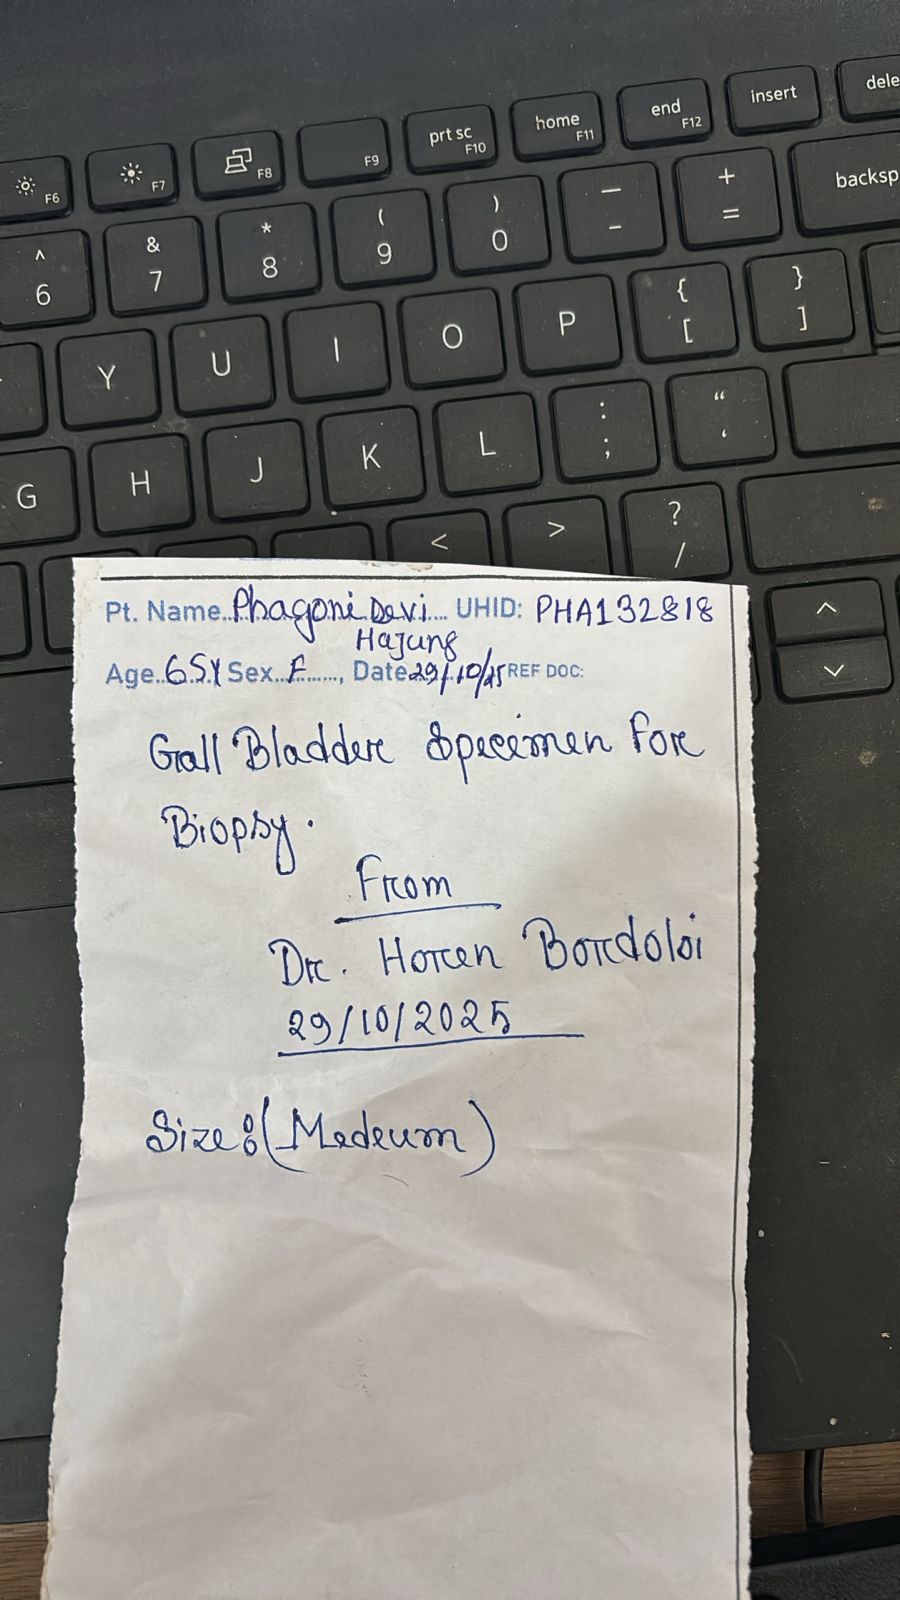 F6 F7 F8 F9 prt sc F10 home F11 end F12 insert dele
^ 6 & 7 * 8 ( 9 ) 0 — - + = backsp
Y U I O P { [ } ]
G H J K L : ; “ ‘
< > ? /
Pt. Name..Phagoni Devi.... UHID: PHA132818
Hajung
Age..65Y Sex..F......, Date29/10/25 REF DOC:
Gall Bladder Specimen For
Biopsy.
From
Dr. Horen Bordoloi
29/10/2025
Size:(Medeum)